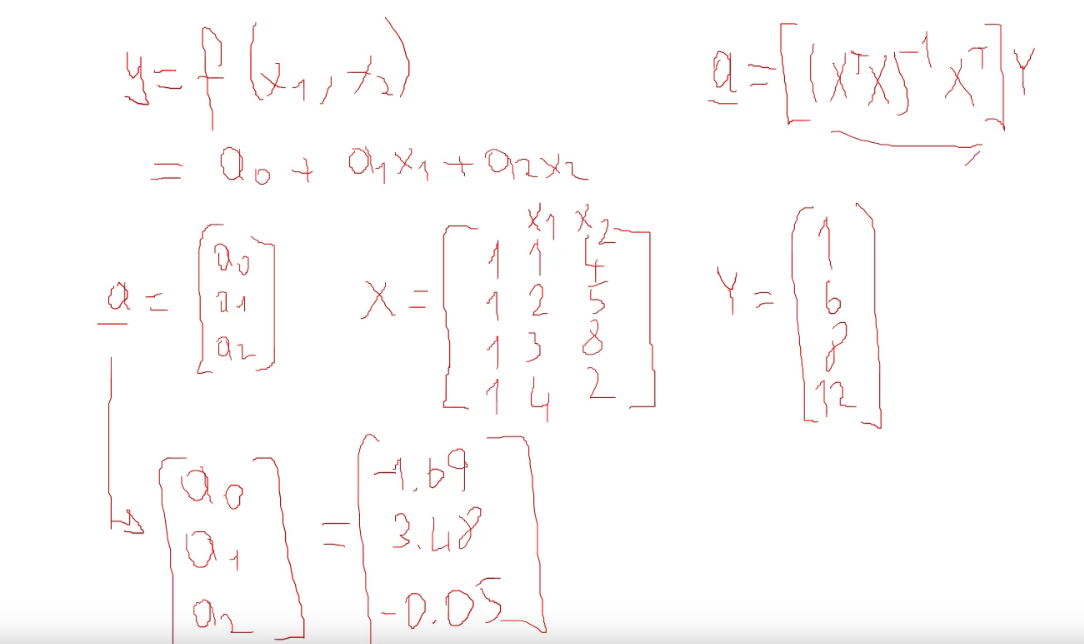 y = f(x1, x2)
= a0 + a1x1 + a2x2
a = [(X^T X)^-1 X^T] Y
a = [a0
a1
a2]
x1 x2
X = [1 1 4
1 2 5
1 3 8
1 4 2]
Y = [1
6
8
12]
[a0
a1
a2]
= [-1.69
3.48
-0.05]